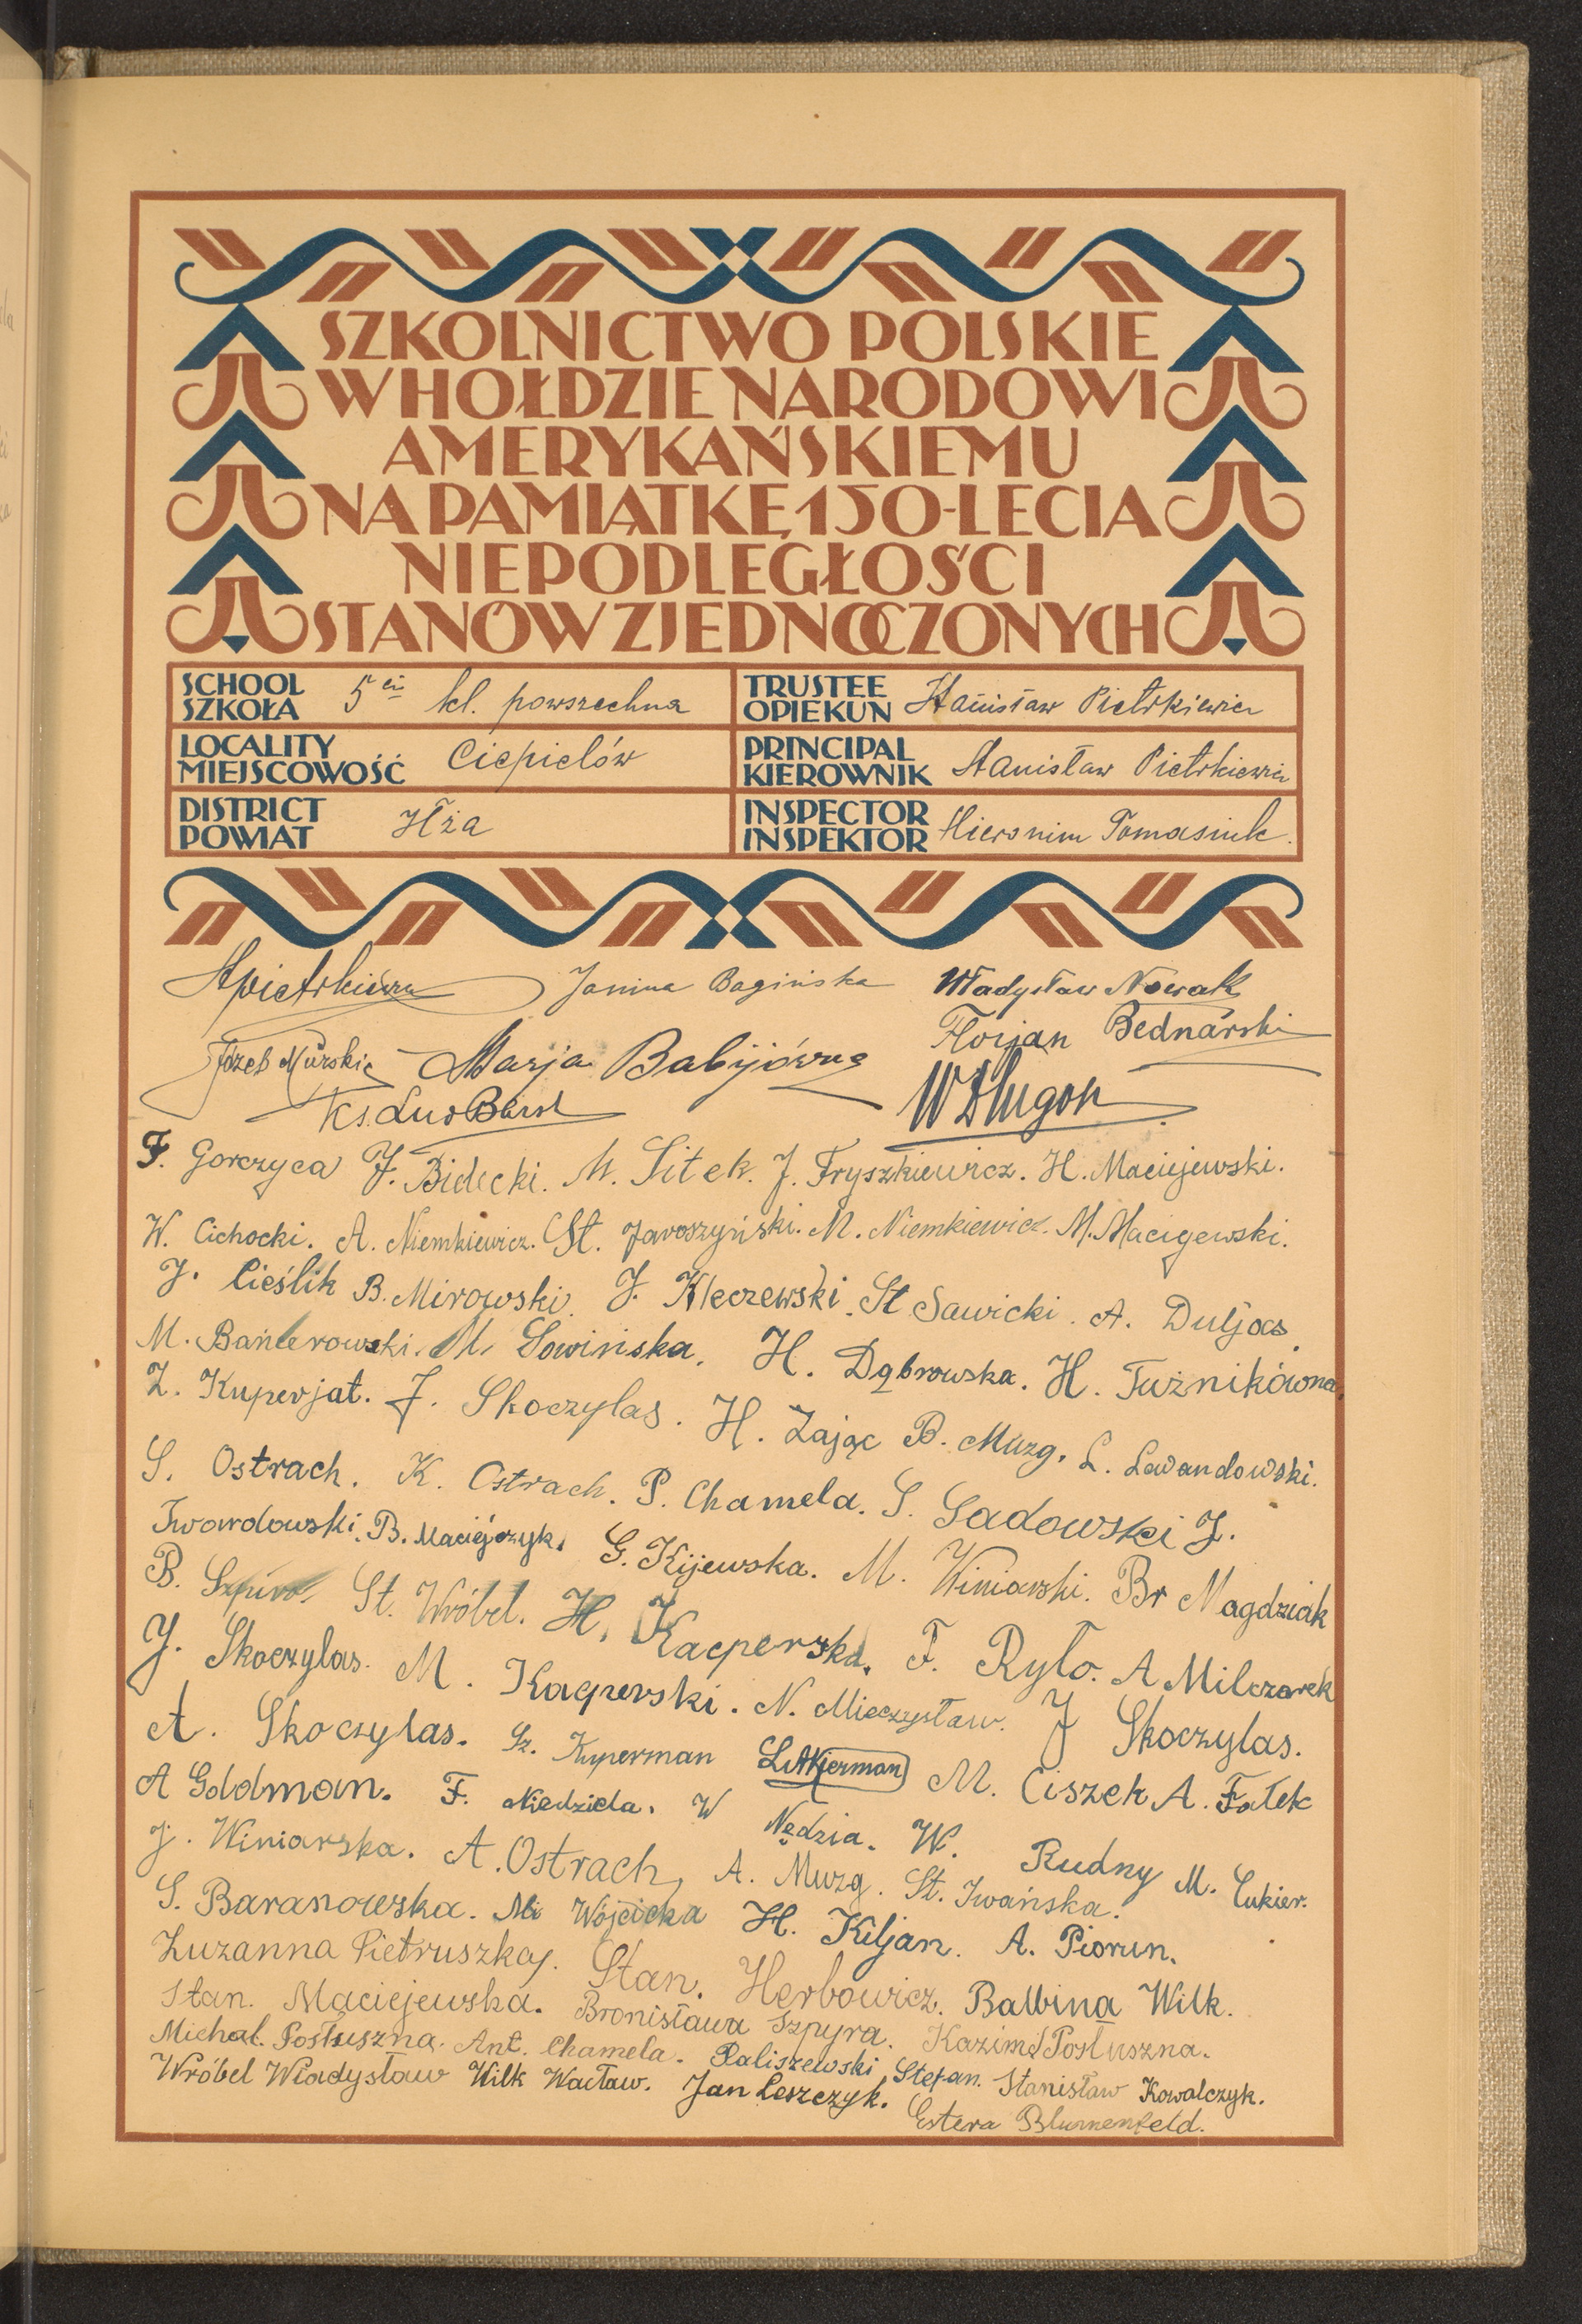 SZKOLNICTWO POLSKIE
W HOŁDZIE NARODOWI
AMERYKAŃSKIEMU
NA PAMIĄTKĘ 150-LECIA
NIEPODLEGŁOŚCI
STANÓW ZJEDNOCZONYCH
SCHOOL
SZKOŁA 5 cio kl. powszechna
TRUSTEE
OPIEKUN Stanisław Pietrkiewicz
LOCALITY
MIEJSCOWOŚĆ Ciepielów
PRINCIPAL
KIEROWNIK Stanisław Pietrkiewicz
DISTRICT
POWIAT Iłża
INSPECTOR
INSPEKTOR Hieronim Tomasiuk.
SPietrkiewicz Janina Bagińska Władysław Nowak
Florjan Bednarski
Józef Marja Babijówna
Ks. W Długosz
F. Gorczyca J. Bielecki. M. Sitek. J. Fryszkiewicz. H. Maciejewski.
W. Cichocki. A. Niemkiewicz. St. Jaroszyński. M. Niemkiewicz. M. Macigewski.
J. Cieślik B. Mirowski. J. Kleczewski. St Sawicki. A. Duljas.
M. Bancerowski. M. Sowińska. H. Dąbrowska. H. Tużnikówna.
Z. Kuperjat. J. Skoczylas. H. Zając B. Muzg. L. Lewandowski.
S. Ostrach. K. Ostrach. P. Chamela. S. Sadowski J.
Twardowski. B. Maciejczyk. G. Kijewska. M. Winiarski. Br Magdziak
B. Szpiro. St. Wróbel. H. Kacperska. F. Ryło. A Milczarek
J. Skoczylas. M. Kacperski. N. Mieczysław. J Skoczylas.
A. Skoczylas. Sz. Kuperman M. Ciszek A. Fałek
A Goldman. F. Niedziela. W Nędzia. W. Rudny M. Cukier.
J. Winiarska. A. Ostrach, A. Muzg. St. Iwańska.
S. Baranowska. M. Wójcicka H. Kiljan. A. Piorun.
Zuzanna Pietruszka. Stan. Herbowicz. Balbina Wilk.
Stan. Maciejewska. Bronisława Szpyra. Kazim. Posłuszna.
Michal. Posłuszna. Ant. Chamela. Paliszewski Stefan. Stanisław Kowalczyk.
Wróbel Władysław Wilk Wacław. Jan Leszczyk. Estera Blumenfeld.